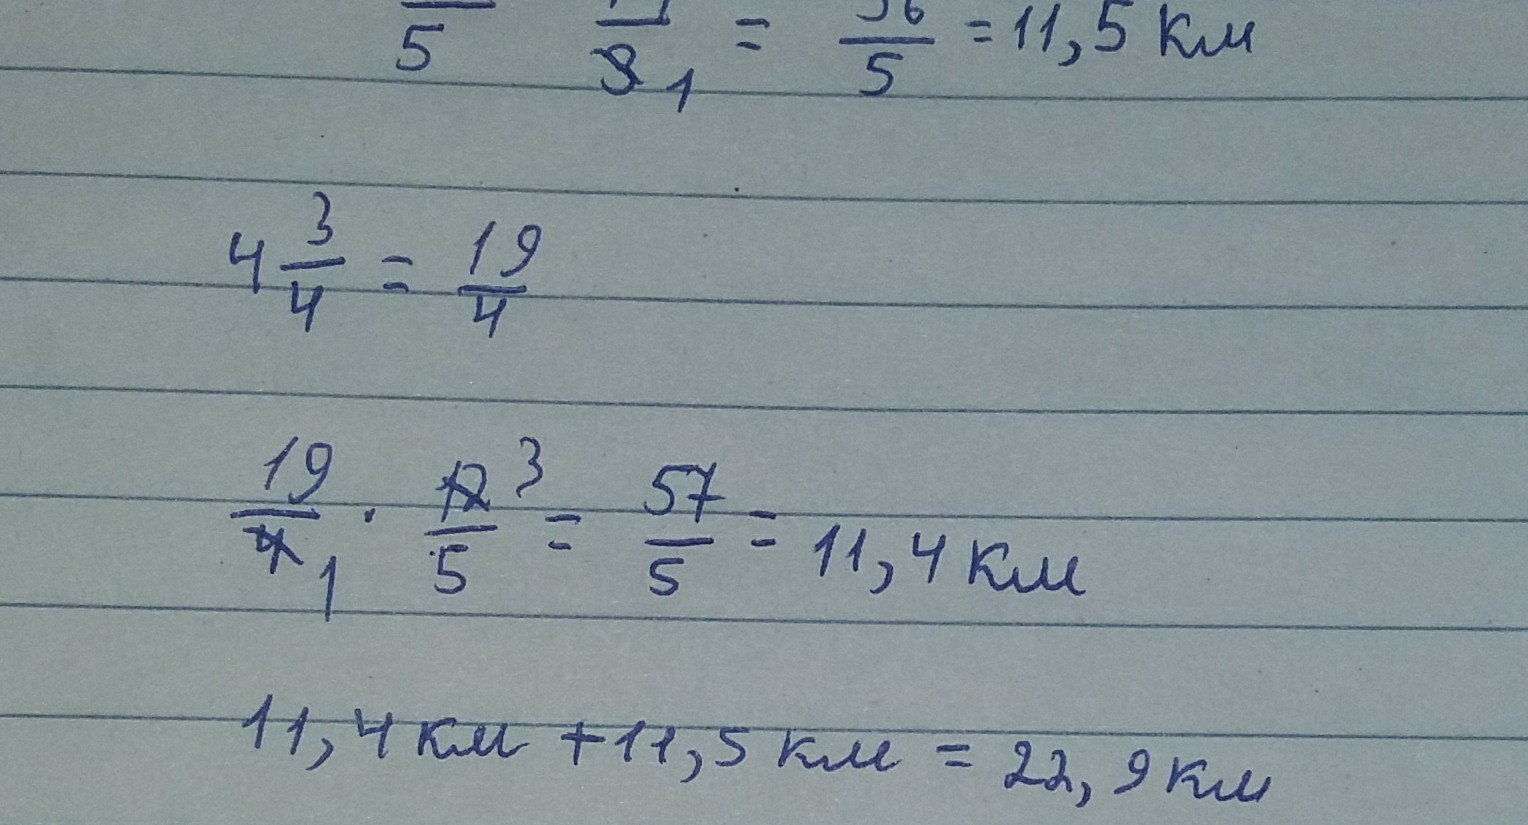 5 3 1 = 56/5 = 11,5 км
4 3/4 = 19/4
19/4 1 · 12/5 3 = 57/5 = 11,4 км
11,4 км + 11,5 км = 22,9 км